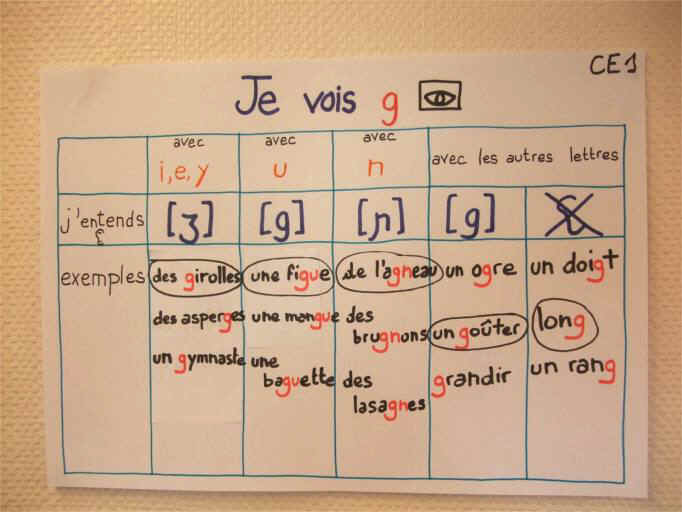 CE1
Je vois g
avec
i,e,y
avec
u
avec
n
avec les autres lettres
j'entends
[ʒ]
[g]
[ɲ]
[g]
exemples
des girolles
des asperges
un gymnaste
une figue
une mangue
une
baguette
de l'agneau
des
brugnons
des
lasagnes
un ogre
un goûter
grandir
un doigt
long
un rang